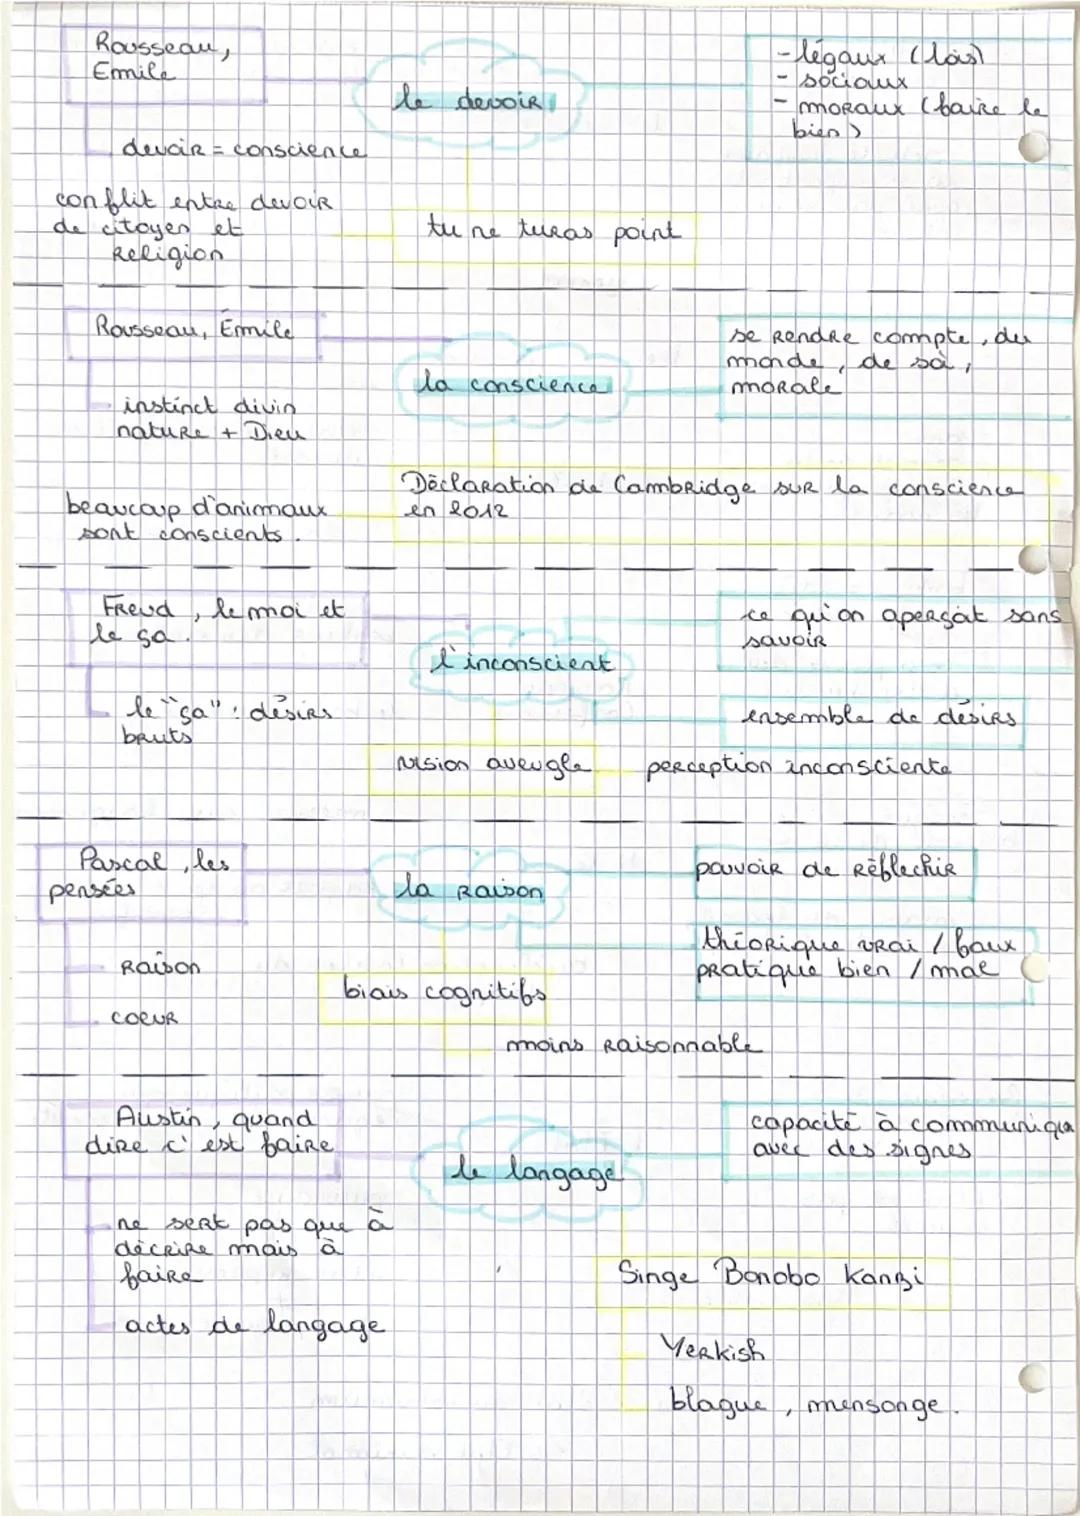 Rousseau,
Emile
le devoir
- légaux (lois)
- sociaux
- moraux (faire le
bien)
devoir = conscience
conflit entre devoir
de citoyen et
religion
tu ne tueras point
Rousseau, Émile
la conscience
se rendre compte, du
monde, de soi,
morale
instinct divin
nature + Dieu
Déclaration de Cambridge sur la conscience
en 2012
beaucoup d'animaux
sont conscients.
Freud, le moi et
le ça.
l'inconscient
ce qu'on aperçoit sans
savoir
le "ça" : désirs
bruts
ensemble de désirs
vision aveugle
perception inconsciente
Pascal, les
pensées
la raison
pouvoir de réflechir
théorique vrai / faux
pratique bien / mal
raison
coeur
biais cognitifs
moins raisonnable
Austin, quand
dire c'est faire
le langage
capacité à communiquer
avec des signes
ne sert pas que à
décrire mais à
faire
actes de langage
Singe Bonobo Kanzi
Yerkish
blague, mensonge.